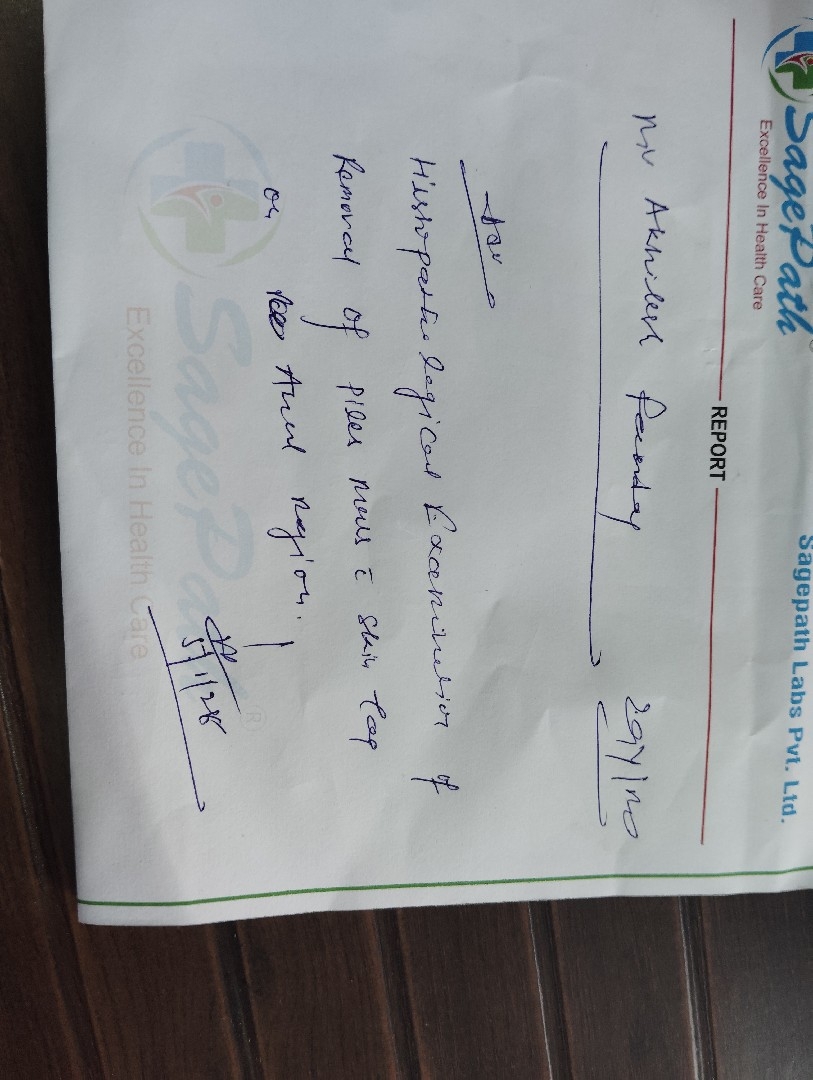 SagePath
Excellence In Health Care
Sagepath Labs Pvt. Ltd.
REPORT
Mr Akhilesh 29Y/M
Adv
Histopathological Examination of
Removal of Piles Mass c̄ Skin tag
on Anal region.
5/1/26
SagePath®
Excellence In Health Care